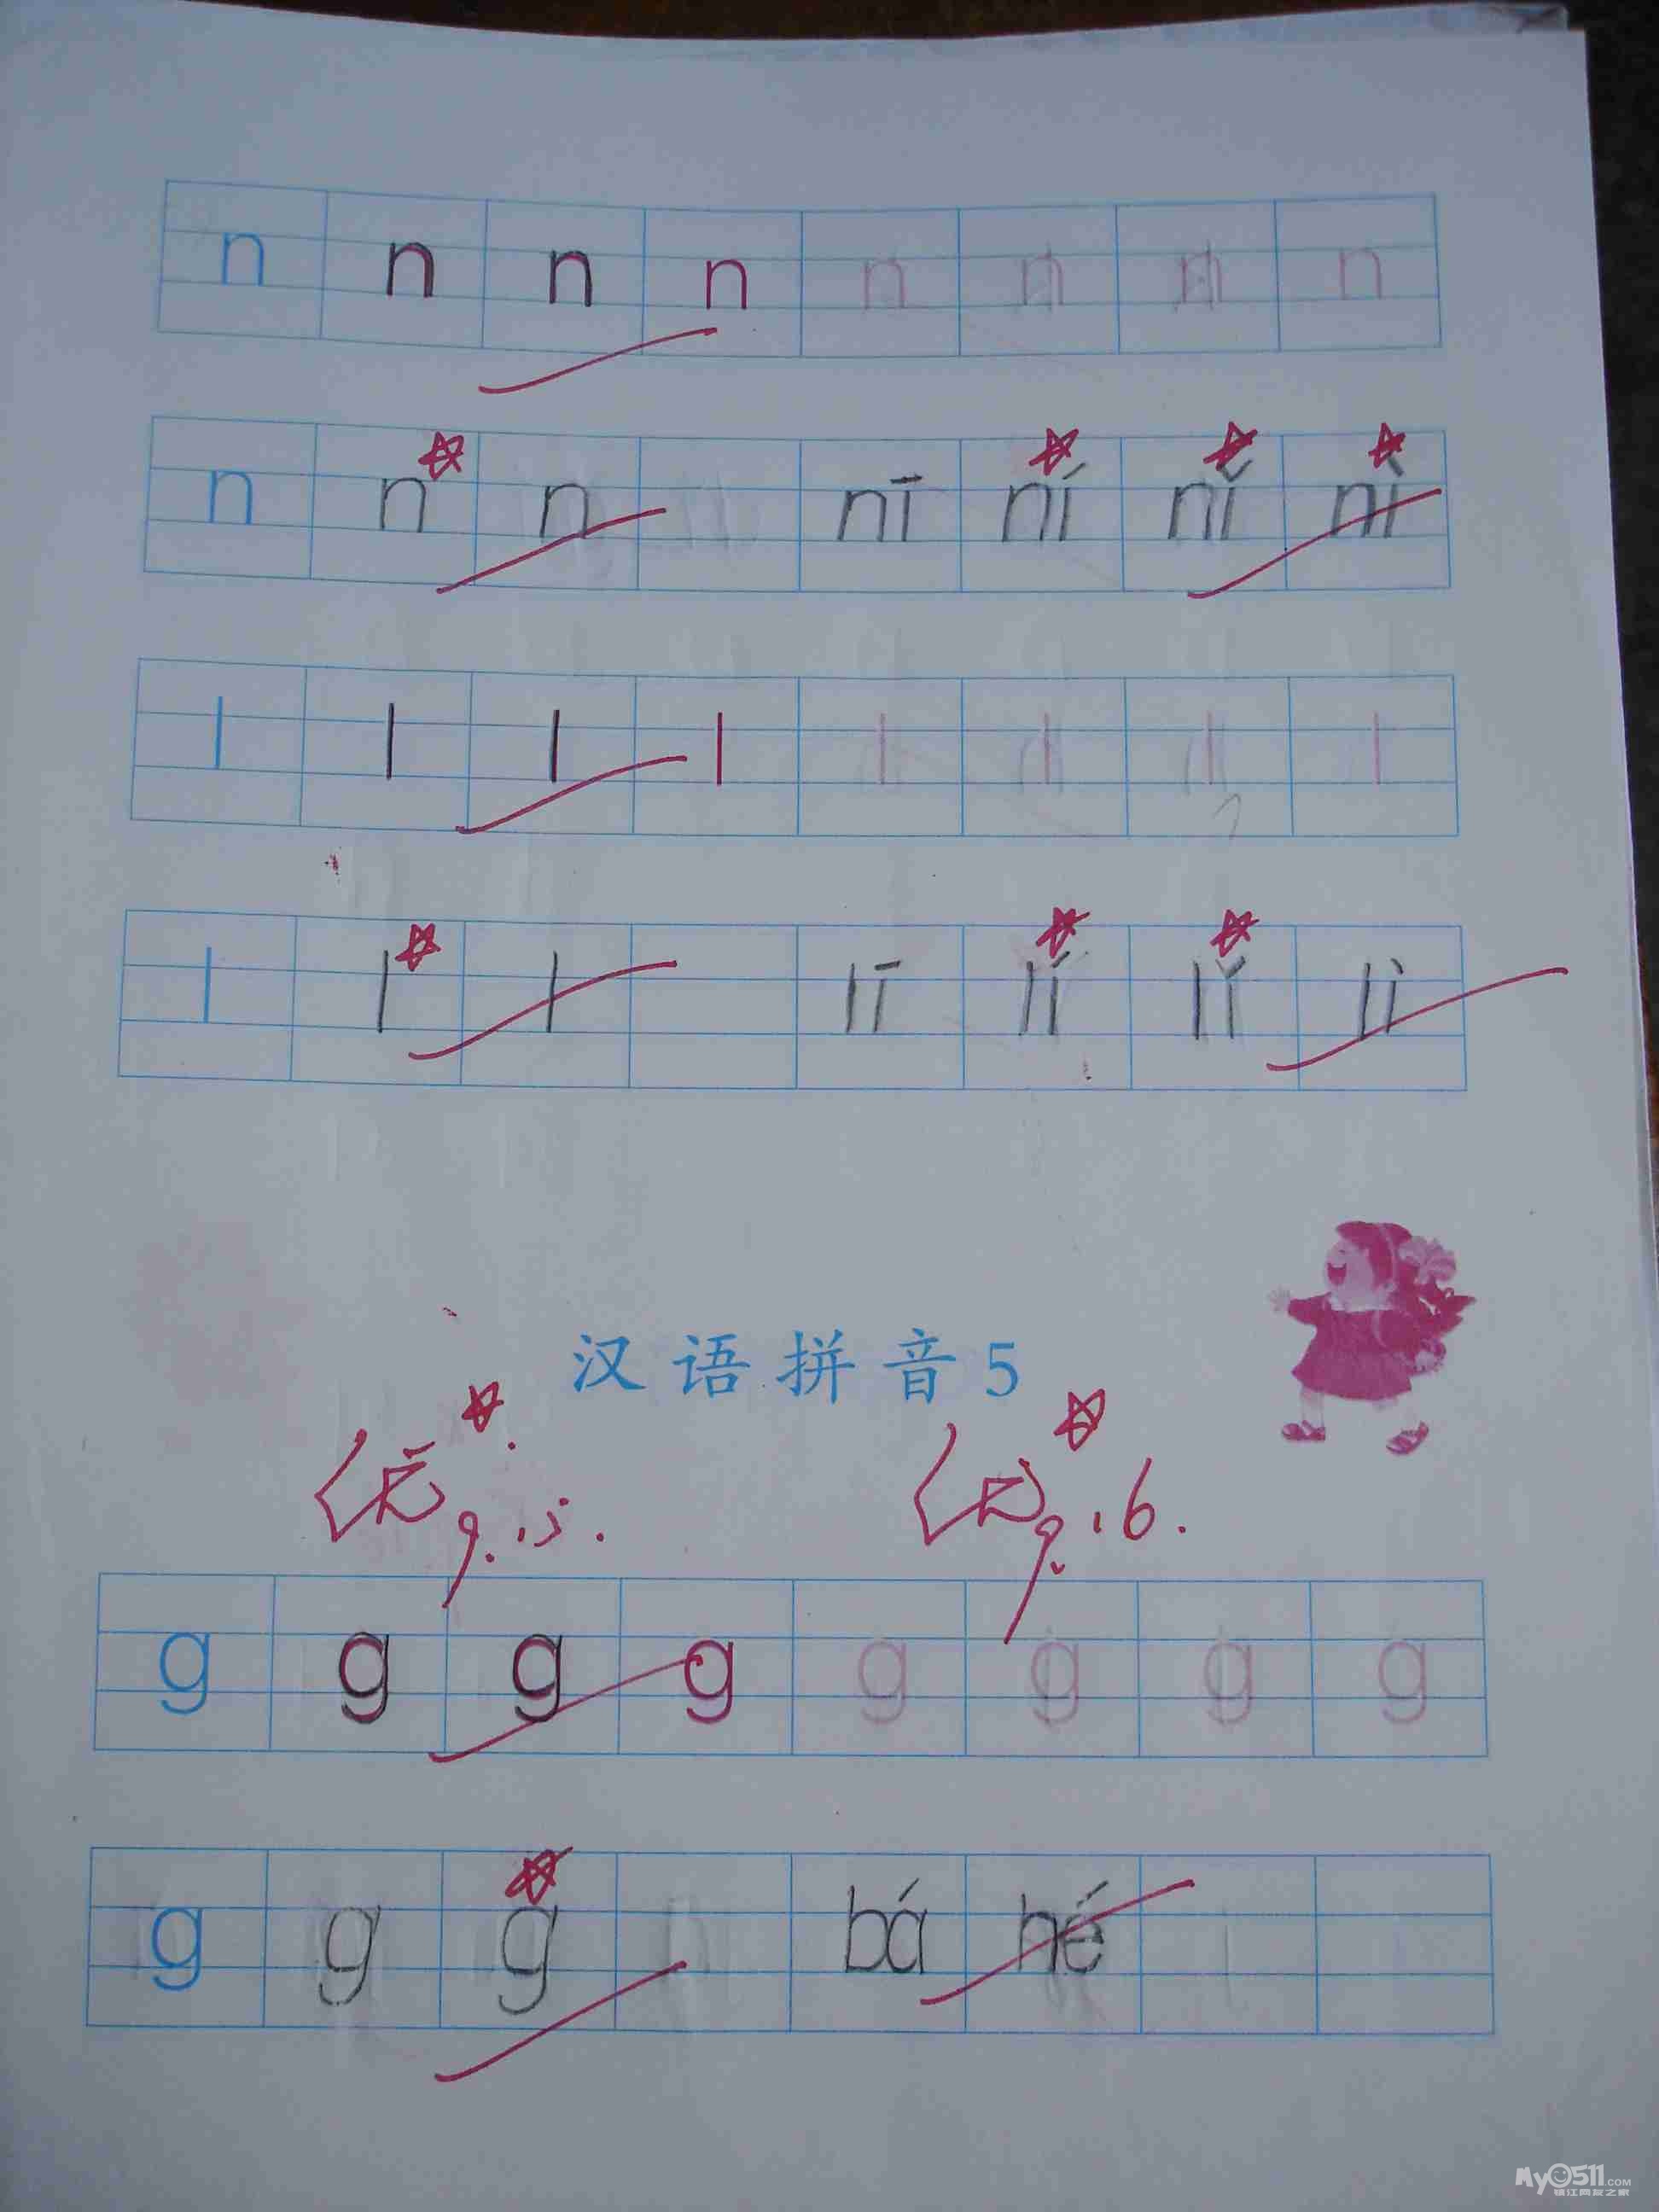 n n n n n n n n
n n n nī ní nǐ nì
l l l l l l l l
l l l lī lí lǐ lì
汉语拼音5
优 9.15. 优 9.16.
g g g g g g g g
g g g bá hé
My0511.COM
镇江网友之家